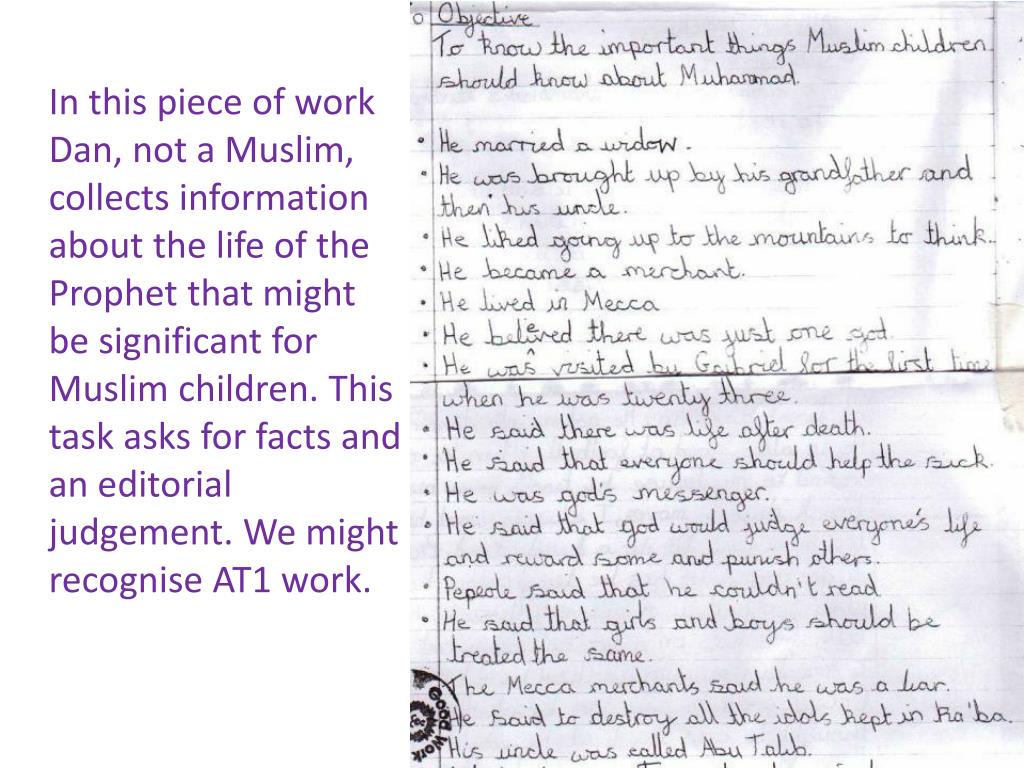 In this piece of work
Dan, not a Muslim,
collects information
about the life of the
Prophet that might
be significant for
Muslim children. This
task asks for facts and
an editorial
judgement. We might
recognise AT1 work.
Objective
To know the important things Muslim children
should know about Muhammad.
• He married a widow.
• He was brought up by his grandfather and
then his uncle.
• He liked going up to the mountains to think.
• He became a merchant.
• He lived in Mecca
• He beleived there was just one god.
• He was visited by Gabriel for the first time
when he was twenty three.
• He said there was life after death.
• He said that everyone should help the sick.
• He was god's messenger.
• He said that god would judge everyone's life
and reward some and punish others.
• Pepeole said that he couldn't read
• He said that girls and boys should be
treated the same.
The Mecca merchants said he was a liar.
He said to destroy all the idols kept in Ka'ba.
His uncle was called Abu Talib.
Good Work